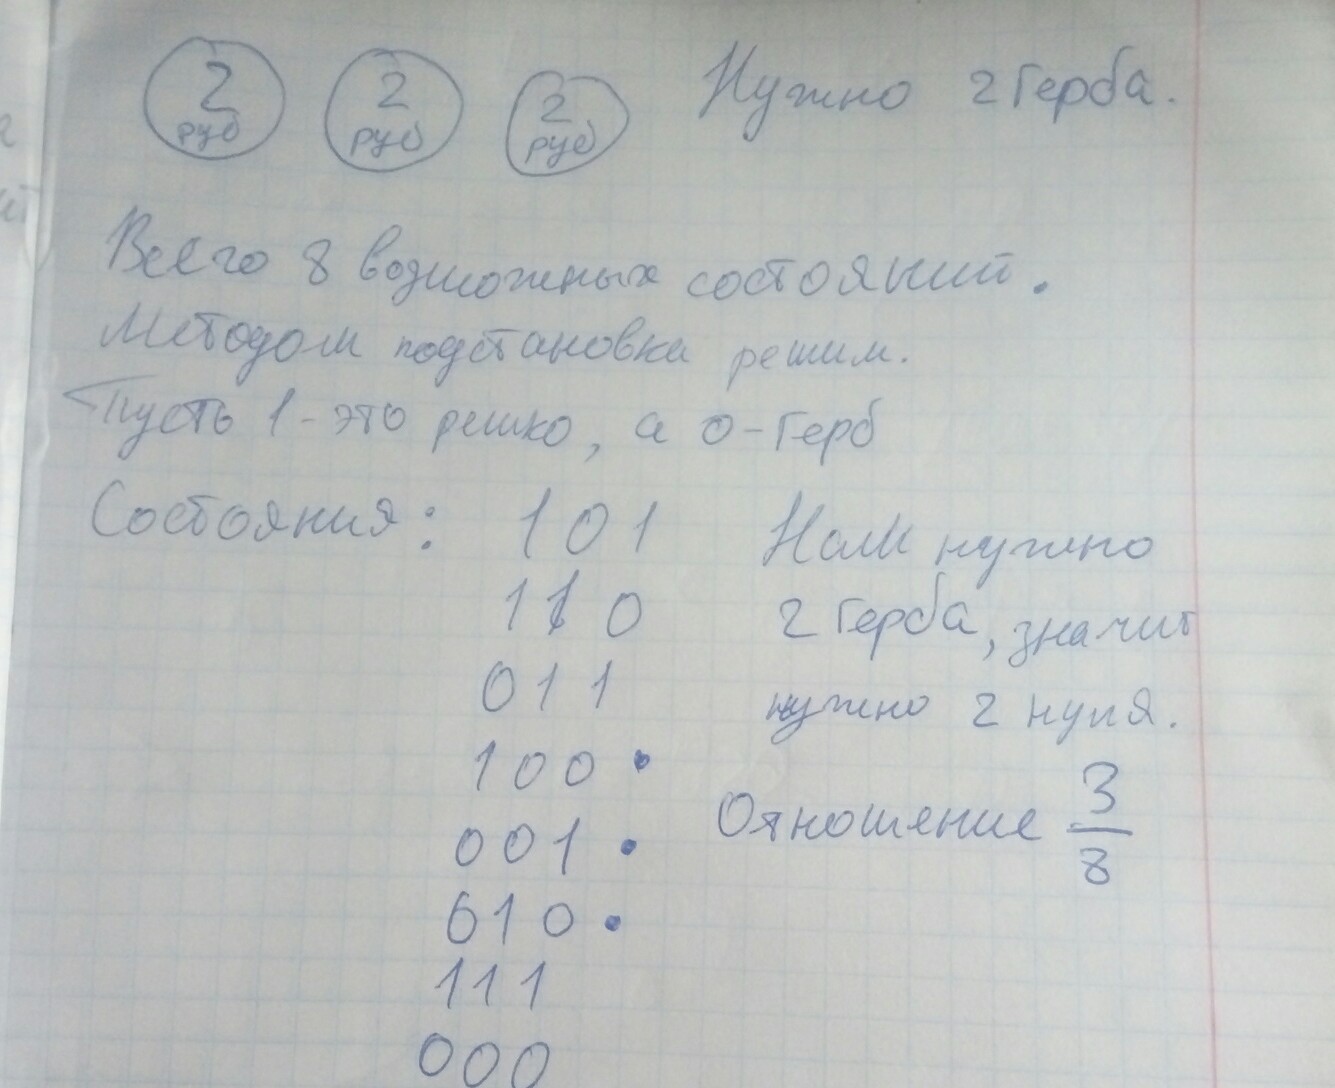 2 руб 2 руб 2 руб Нужно 2 герба.
Всего 8 возможных состояний.
Методом подстановки решим.
Пусть 1 - это решко, а 0 - герб
Состояния: 101 Нам нужно
110 2 герба, значит
011 нужно 2 нуля.
100 •
Отношение 3/8
001 •
010 •
111
000